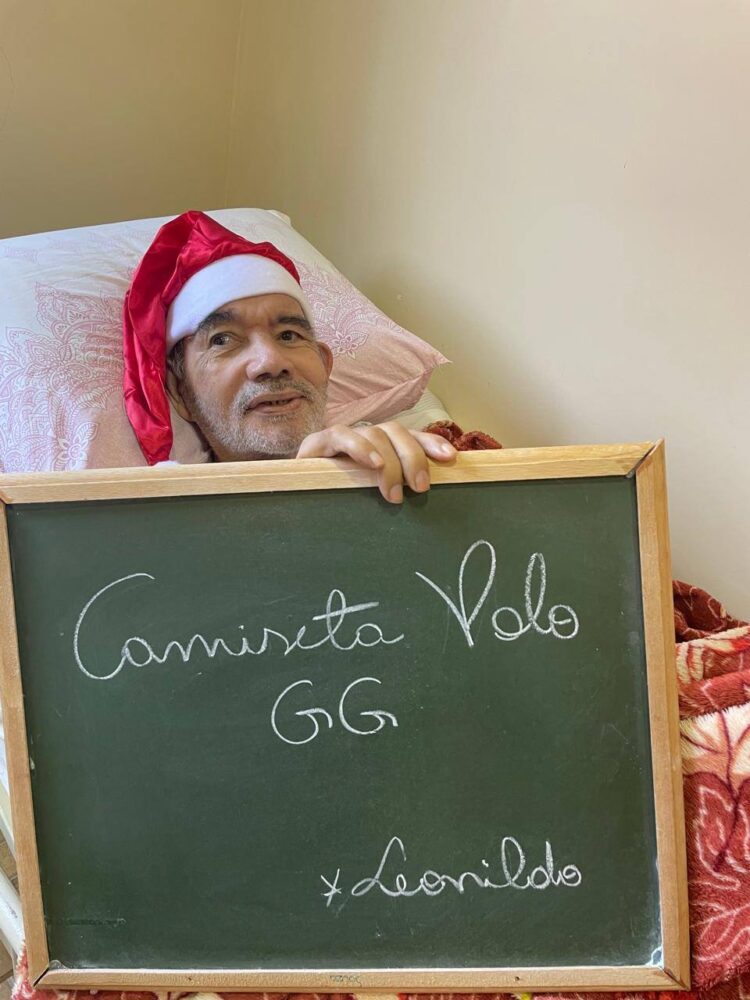 Camiseta Polo
GG
* Leonildo